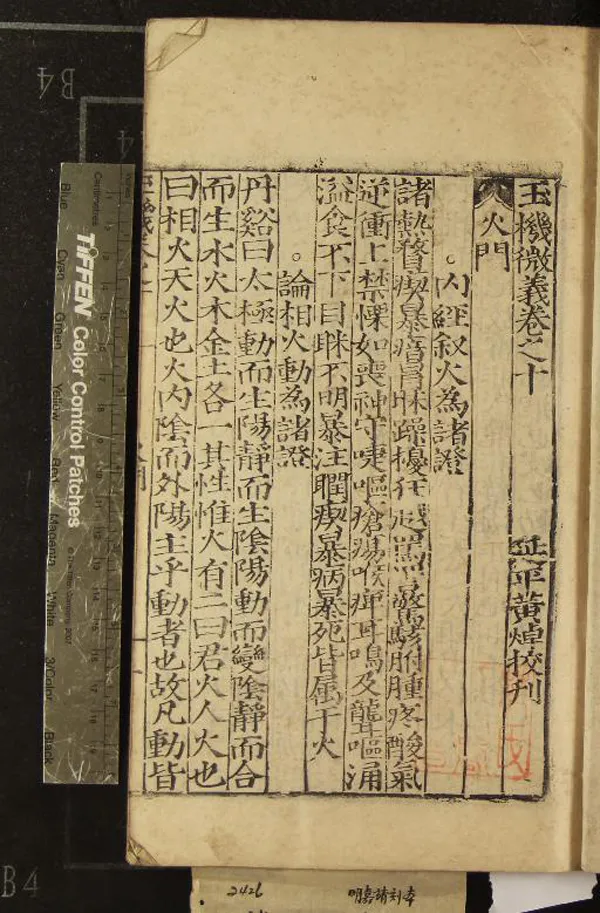 玉機微義卷之十　延平黃焯校刊
火門
。內經叙火為諸證
諸熱瞀瘈暴瘖冒昧躁擾狂越罵詈驚駭胕腫疼酸氣
逆衝上禁慄如喪神守嚏嘔瘡瘍喉痹耳鳴及聾嘔涌
溢食不下目眛不明暴注瞤瘈暴病暴死皆屬于火
。論相火動為諸證
丹谿曰太極動而生陽靜而生陰陽動而變陰靜而合
而生水火木金土各一其性惟火有二曰君火人火也
曰相火天火也火內陰而外陽主乎動者也故凡動皆
TIFFEN Color Control Patches
Centimetres
Blue Cyan Green Yellow Red Magenta White 3/Color Black
B4
B4
2426
明嘉靖刻本